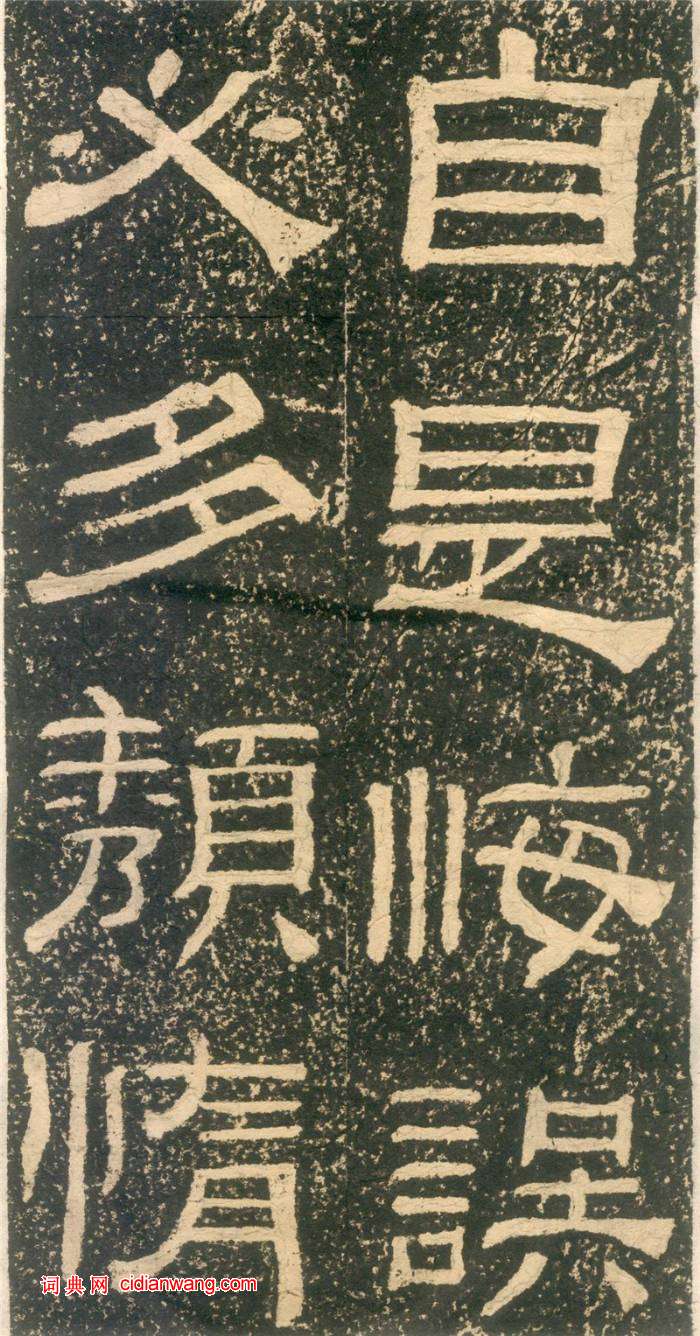 自是悔誤
必多頽惰
词典网 cidianwang.com